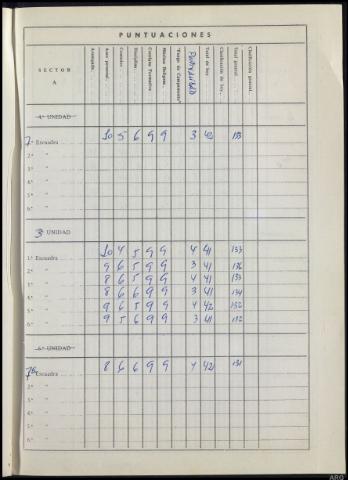 PUNTUACIONES
SECTOR A
Aseo personal
Comedor
Disciplina
Máxima Diligencia
"Fuego de Campamento"
PUNTUALIDAD
Total de hoy
Clasificación de hoy
Total general
Clasificación general
4.ª UNIDAD
7.ª Escuadra 10 5 6 9 9 3 42
2.ª "
3.ª "
4.ª "
5.ª "
6.ª "
3ª UNIDAD
1.ª Escuadra 10 4 5 9 9 4 41 133
2.ª " 9 6 5 9 9 3 41 136
3.ª " 8 6 5 9 9 4 41 133
4.ª " 8 6 6 9 9 3 41 134
5.ª " 9 6 5 9 9 4 42 132
6.ª " 9 5 6 9 9 3 41 132
6.ª UNIDAD
7ª Escuadra 8 6 6 9 9 4 42 131
2.ª "
3.ª "
4.ª "
5.ª "
6.ª "
ARG